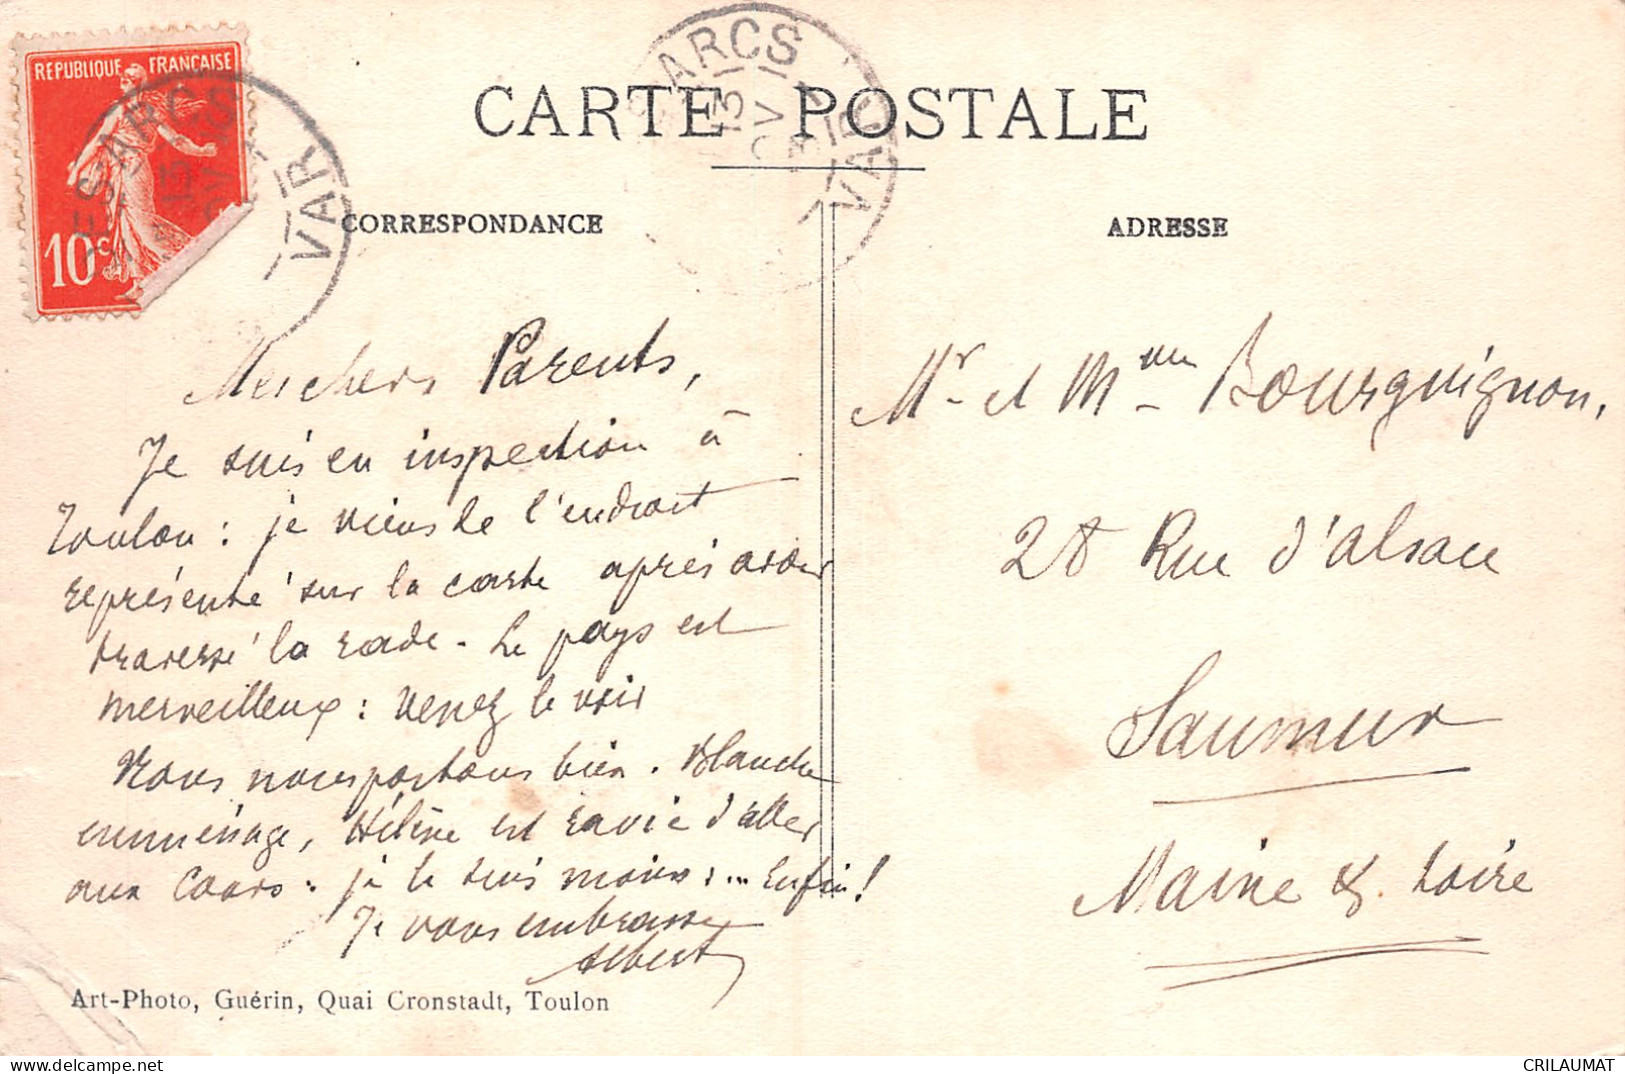 REPUBLIQUE FRANÇAISE
10c
LES ARCS
13
VAR
LES ARCS
13
VAR
CARTE POSTALE
CORRESPONDANCE
ADRESSE
Mes chers Parents,
Je suis en inspection à
Toulon : je viens de l'endroit
représenté sur la carte après avoir
traversé la rade. Le pays est
merveilleux : venez le voir
Nous nous portons bien. Blanche
emménage, Hélène est ravie d'aller
aux Cours : je le suis moins : ... Enfin !
Je vous embrasse
Albert
Mr et Mme Bourguignon,
28 Rue d'Alsace
Saumur
Maine & Loire
Art-Photo, Guérin, Quai Cronstadt, Toulon
CRILAUMAT